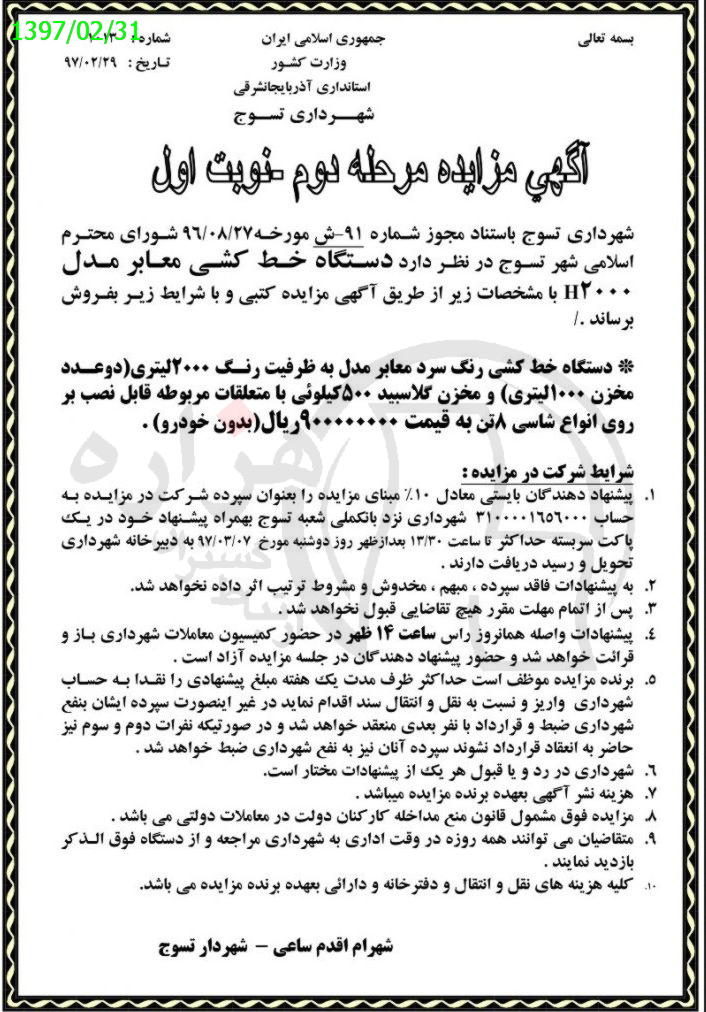 1397/02/31
بسمه تعالی
جمهوری اسلامی ایران
شماره:
وزارت کشور
تاریخ: ۹۷/۰۲/۲۹
استانداری آذربایجانشرقی
شهرداری تسوج
آگهي مزايده مرحله دوم -نوبت اول
شهرداری تسوج باستناد مجوز شماره ۹۱-ش مورخه ۹۶/۰۸/۲۷ شورای محترم
اسلامی شهر تسوج در نظر دارد دستگاه خط کشی معابر مدل
H۲۰۰۰ با مشخصات زیر از طریق آگهی مزایده کتبی و با شرایط زیر بفروش
برساند ./
❊ دستگاه خط کشی رنگ سرد معابر مدل به ظرفیت رنگ ۲۰۰۰لیتری(دوعدد
مخزن ۱۰۰۰لیتری) و مخزن گلاسبید ۵۰۰کیلوئی با متعلقات مربوطه قابل نصب بر
روی انواع شاسی ۸تن به قیمت ۹۰۰۰۰۰۰۰۰ریال(بدون خودرو) .
شرایط شرکت در مزایده :
۱. پیشنهاد دهندگان بایستی معادل ۱۰٪ مبنای مزایده را بعنوان سپرده شرکت در مزایده به
حساب ۳۱۰۰۰۰۱۶۵۶۰۰۰ شهرداری نزد بانکملی شعبه تسوج بهمراه پیشنهاد خود در یک
پاکت سربسته حداکثر تا ساعت ۱۳/۳۰ بعدازظهر روز دوشنبه مورخ ۹۷/۰۳/۰۷ به دبیرخانه شهرداری
تحویل و رسید دریافت دارند .
۲. به پیشنهادات فاقد سپرده ، مبهم ، مخدوش و مشروط ترتیب اثر داده نخواهد شد.
۳. پس از اتمام مهلت مقرر هیچ تقاضایی قبول نخواهد شد .
۴. پیشنهادات واصله همانروز راس ساعت ۱۴ ظهر در حضور کمیسیون معاملات شهرداری باز و
قرائت خواهد شد و حضور پیشنهاد دهندگان در جلسه مزایده آزاد است .
۵. برنده مزایده موظف است حداکثر ظرف مدت یک هفته مبلغ پیشنهادی را نقدا به حساب
شهرداری واریز و نسبت به نقل و انتقال سند اقدام نماید در غیر اینصورت سپرده ایشان بنفع
شهرداری ضبط و قرارداد با نفر بعدی منعقد خواهد شد و در صورتیکه نفرات دوم و سوم نیز
حاضر به انعقاد قرارداد نشوند سپرده آنان نیز به نفع شهرداری ضبط خواهد شد .
۶. شهرداری در رد و یا قبول هر یک از پیشنهادات مختار است.
۷. هزینه نشر آگهی بعهده برنده مزایده میباشد .
۸. مزایده فوق مشمول قانون منع مداخله کارکنان دولت در معاملات دولتی می باشد .
۹. متقاضیان می توانند همه روزه در وقت اداری به شهرداری مراجعه و از دستگاه فوق الذکر
بازدید نمایند .
۱۰. کلیه هزینه های نقل و انتقال و دفترخانه و دارائی بعهده برنده مزایده می باشد.
شهرام اقدم ساعی – شهردار تسوج
هزاره